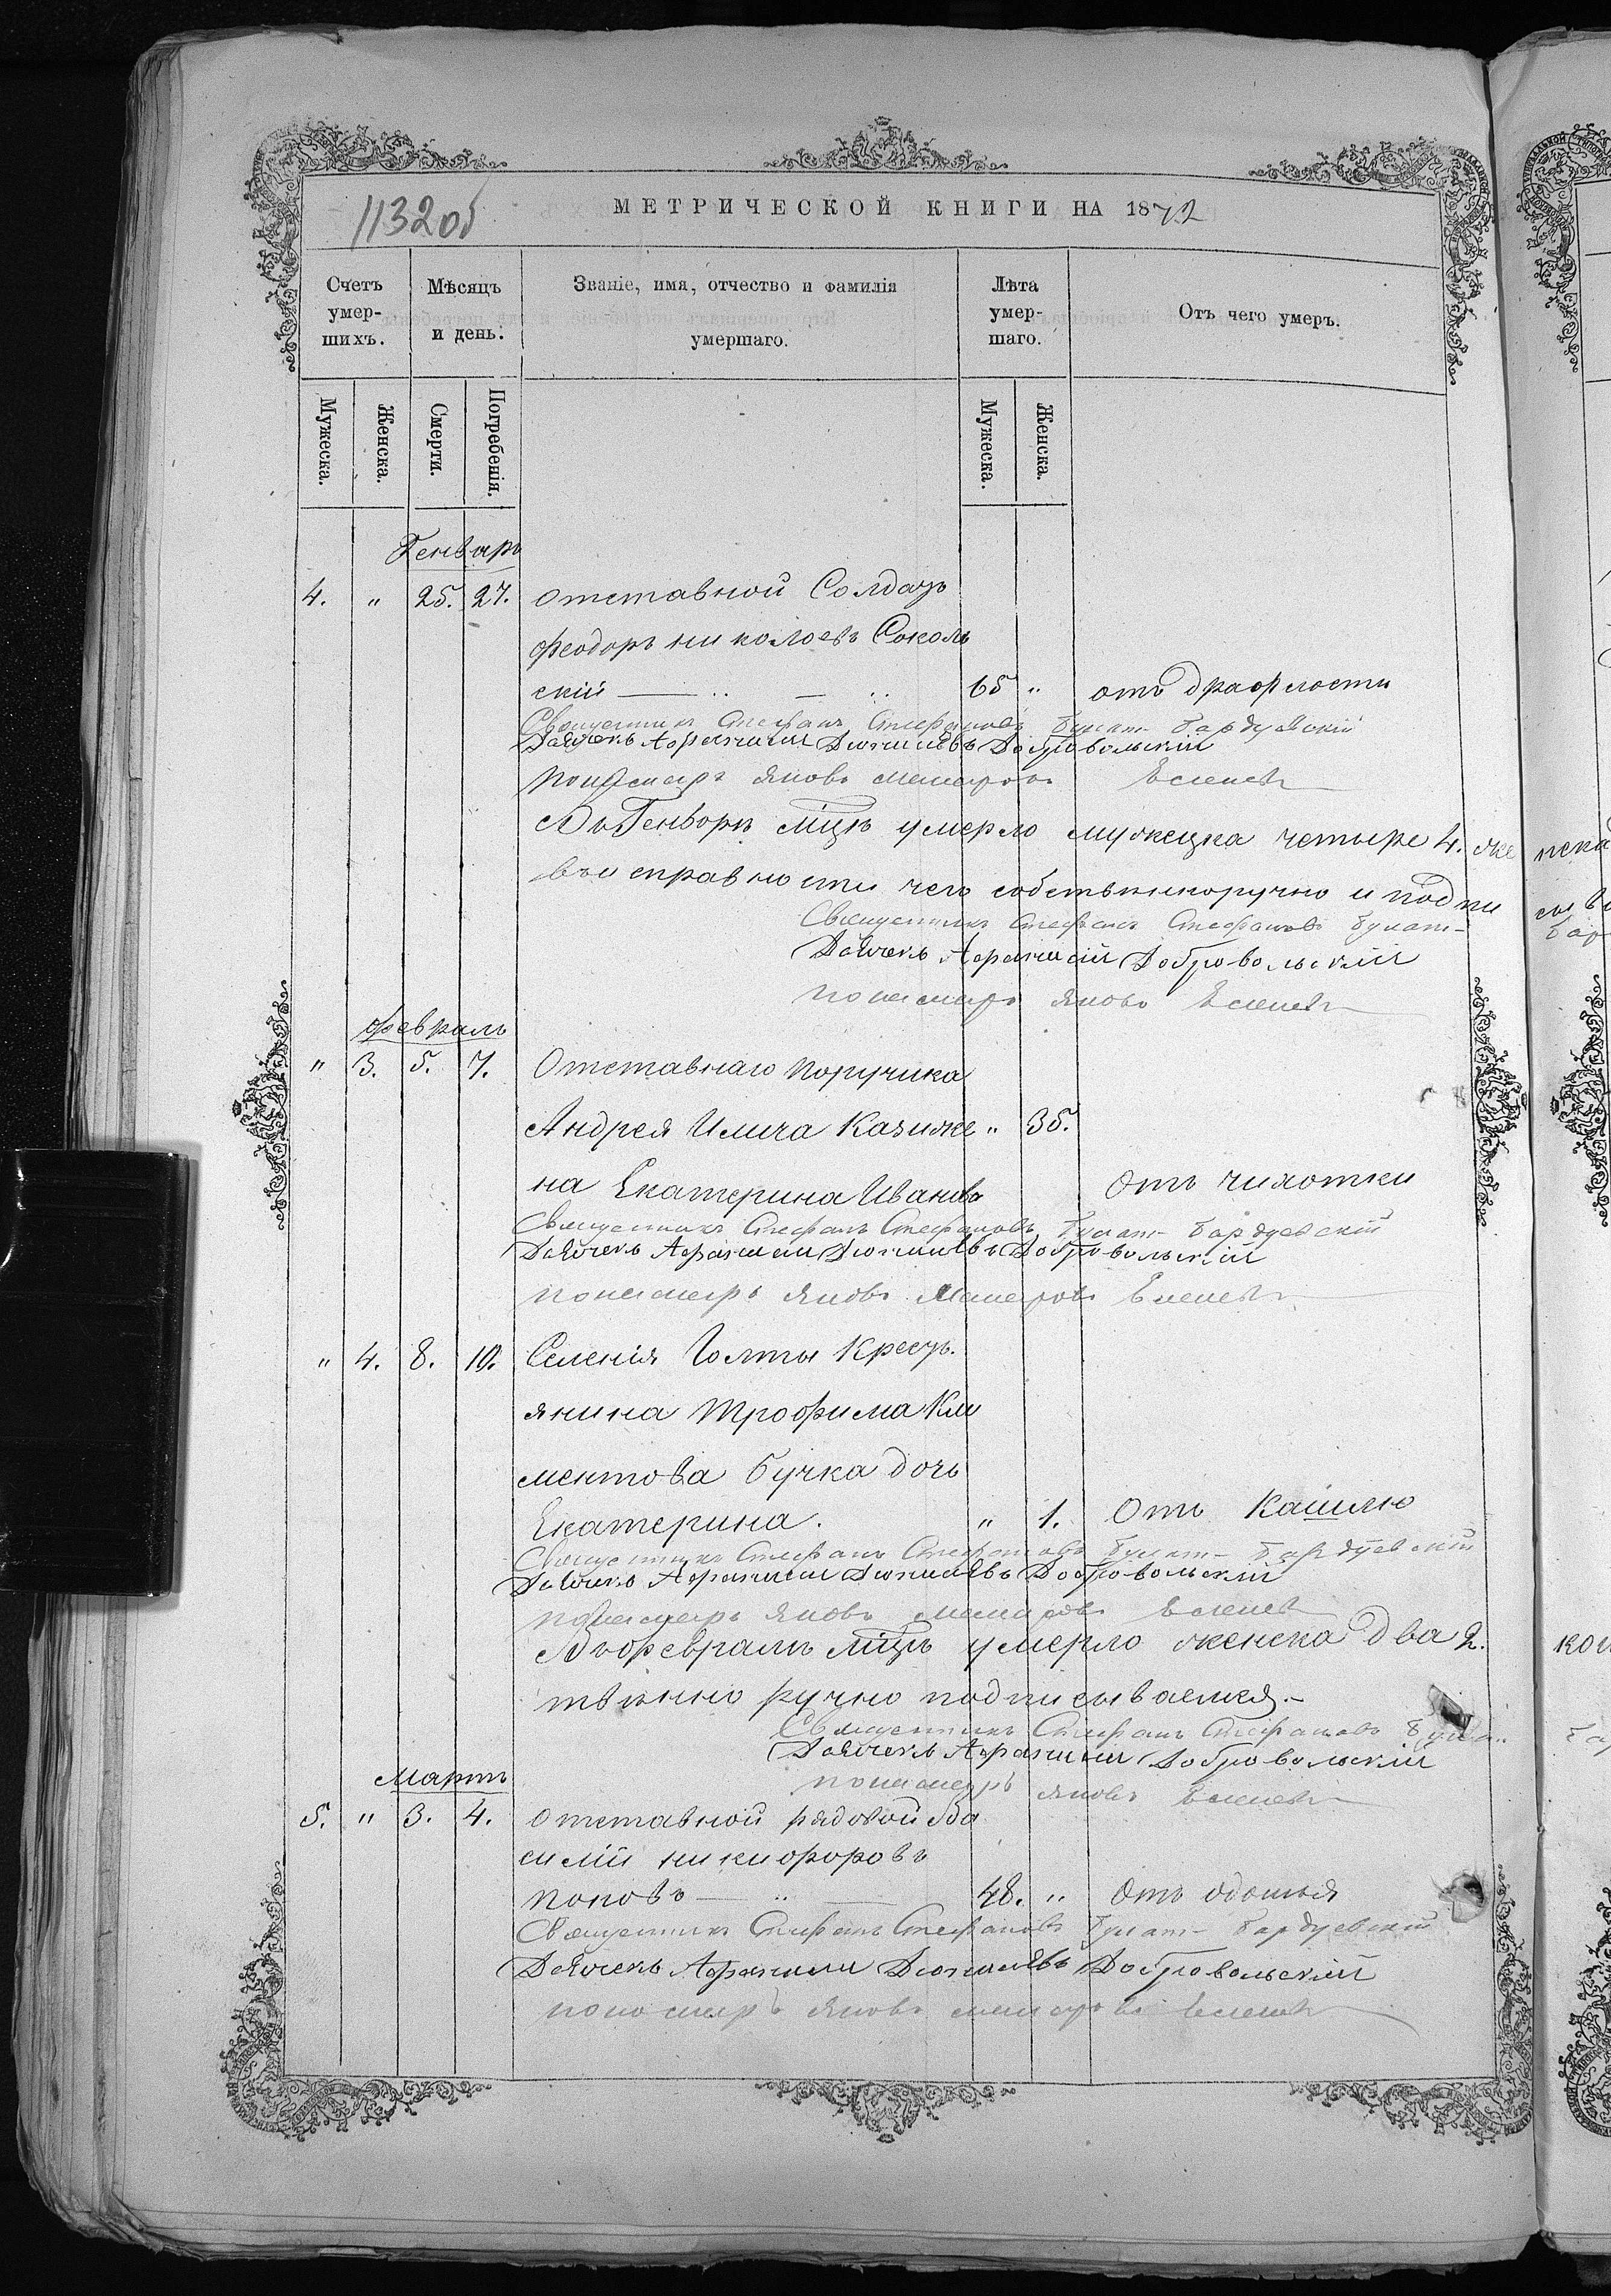 1132об
МЕТРИЧЕСКОЙ КНИГИ НА 1872
Счетъ умер-шихъ.
Мѣсяцъ и день.
Званіе, имя, отчество и фамилія умершаго.
Лѣта умер-шаго.
Отъ чего умеръ.
Мужеска.
Женска.
Смерти.
Погребенія.
Мужеска.
Женска.
Генварь
4. " 25. 27. отставной Солдатъ
феодоръ николаевъ Соколь
скій 65 " отъ драфлости
Священникъ Стефанъ Стефановъ Булат- Бардуевскій
Дьячекъ Афанасій Добровольскій
пономаръ яковъ
Въ Генворѣ мѣцѣ умерло мужецка четыре 4. же
въ исправности чего собственноручно и подпи
Священникъ Стефанъ Стефановъ Булат-
Дьячекъ Афанасій Добровольскій
пономаръ яковъ
февраль
" 3. 5. 7. Отставнаго поручика
Андрея Илича Казиже " 35.
на Екатерина Иванова Отъ чихотки
Священникъ Стефанъ Стефановъ Булат- Бардуевскій
Дьячекъ Афанасій Добровольскій
пономаръ яковъ
" 4. 8. 10. Селенія Голты Кресть.
янина трофима Кли
ментова бучка дочь
Екатерина. " 1. Отъ Кашлю
Священникъ Стефанъ Стефановъ Булат- Бардуевскій
Дьячекъ Афанасій Добровольскій
пономаръ яковъ
Въ февралѣ мѣцѣ умерло женска два 2.
твенно ручно подписываемся.-
Священникъ Стефанъ Стефановъ
Дьячекъ Афанасій Добровольскій
пономаръ яковъ
Мартъ
5. " 3. 4. отставной рядовой Ва
силій никифоровъ
поповъ 48. " Отъ
Священникъ Стефанъ Стефановъ Булат- Бардуевскій
Дьячекъ Афанасій Добровольскій
пономаръ яковъ